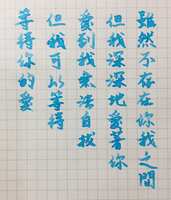 雖然不存在你我之間
但我深深地愛著你
愛到我無法自拔
但我可以等得
等得你的愛